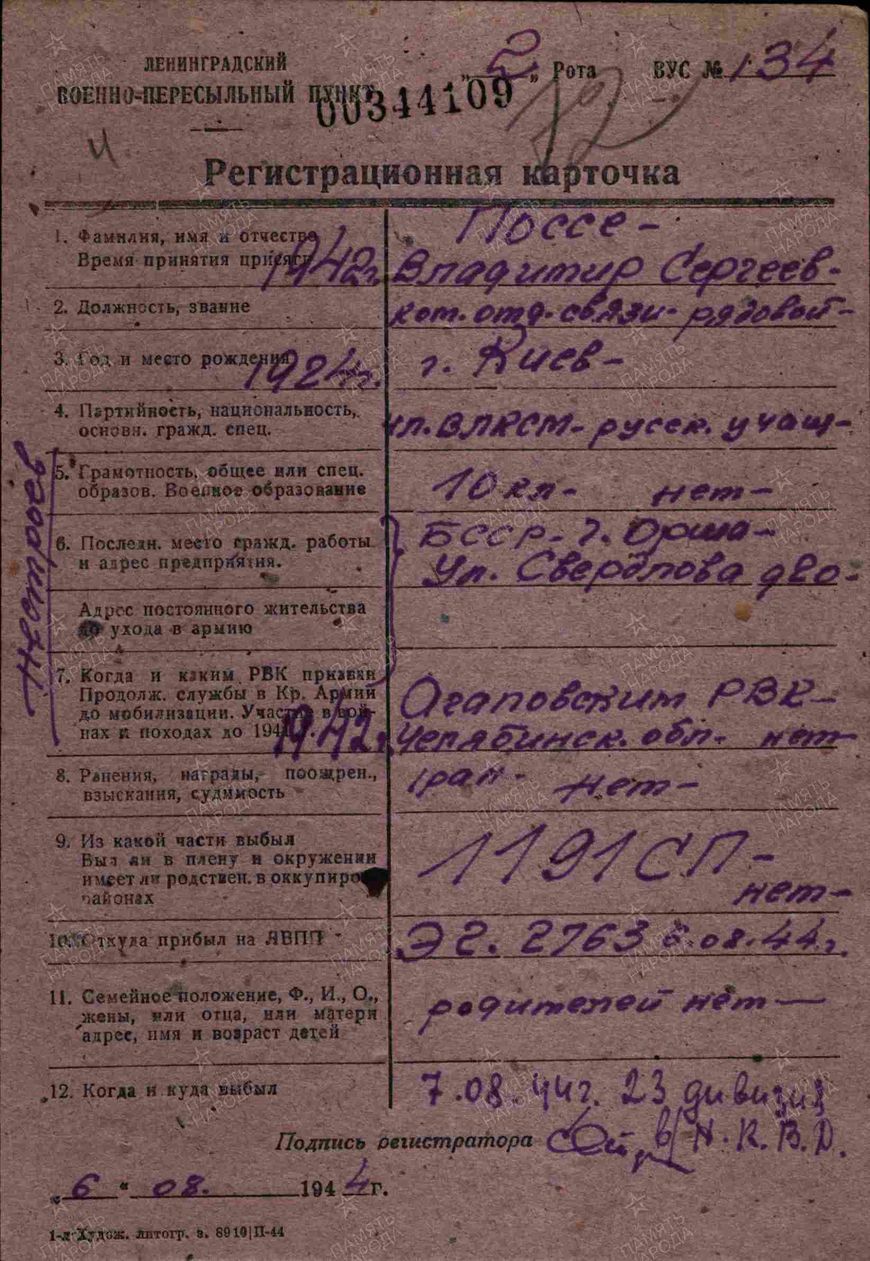 ЛЕНИНГРАДСКИЙ
ВОЕННО-ПЕРЕСЫЛЬНЫЙ ПУНКТ
"2" Рота ВУС № 134
00344109
Регистрационная карточка
1. Фамилия, имя и отчество
Время принятия присяги 1942г.
Поссе-
Владимир Сергеев-
2. Должность, звание
ком. отд. связи- рядовой-
3. Год и место рождения 1924г.
г. Киев-
4. Партийность, национальность,
основн. гражд. спец.
чл. ВЛКСМ- русск. учащ-
5. Грамотность, общее или спец.
образов. Военное образование
10 кл- нет-
6. Последн. место гражд. работы
и адрес предприятия.
БССР- г. Орша-
Ул. Свердлова д20-
Адрес постоянного жительства
до ухода в армию
7. Когда и каким РВК призван
Продолж. службы в Кр. Армии
до мобилизации. Участ. в вой-
нах и походах до 1941 г.
1942г.
Агаповским РВК-
Челябинск. обл- нет
8. Ранения, награды, поощрен.,
взыскания, судимость
1 ран- нет-
9. Из какой части выбыл
Был ли в плену и окружении
имеет ли родствен. в оккупиров.
районах
1191 СП-
нет-
10. Откуда прибыл на ЛВПП
ЭГ. 2763 6.08.44г.
11. Семейное положение, Ф., И., О.,
жены, или отца, или матери
адрес, имя и возраст детей
родителей нет-
12. Когда и куда выбыл
7.08.44г. 23 дивизия
в/Н.К.В.Д.
Подпись регистратора
"6" 08. 1944г.
1-я Худож. литогр. з. 8910|П-44
ПАМЯТЬ
НАРОДА